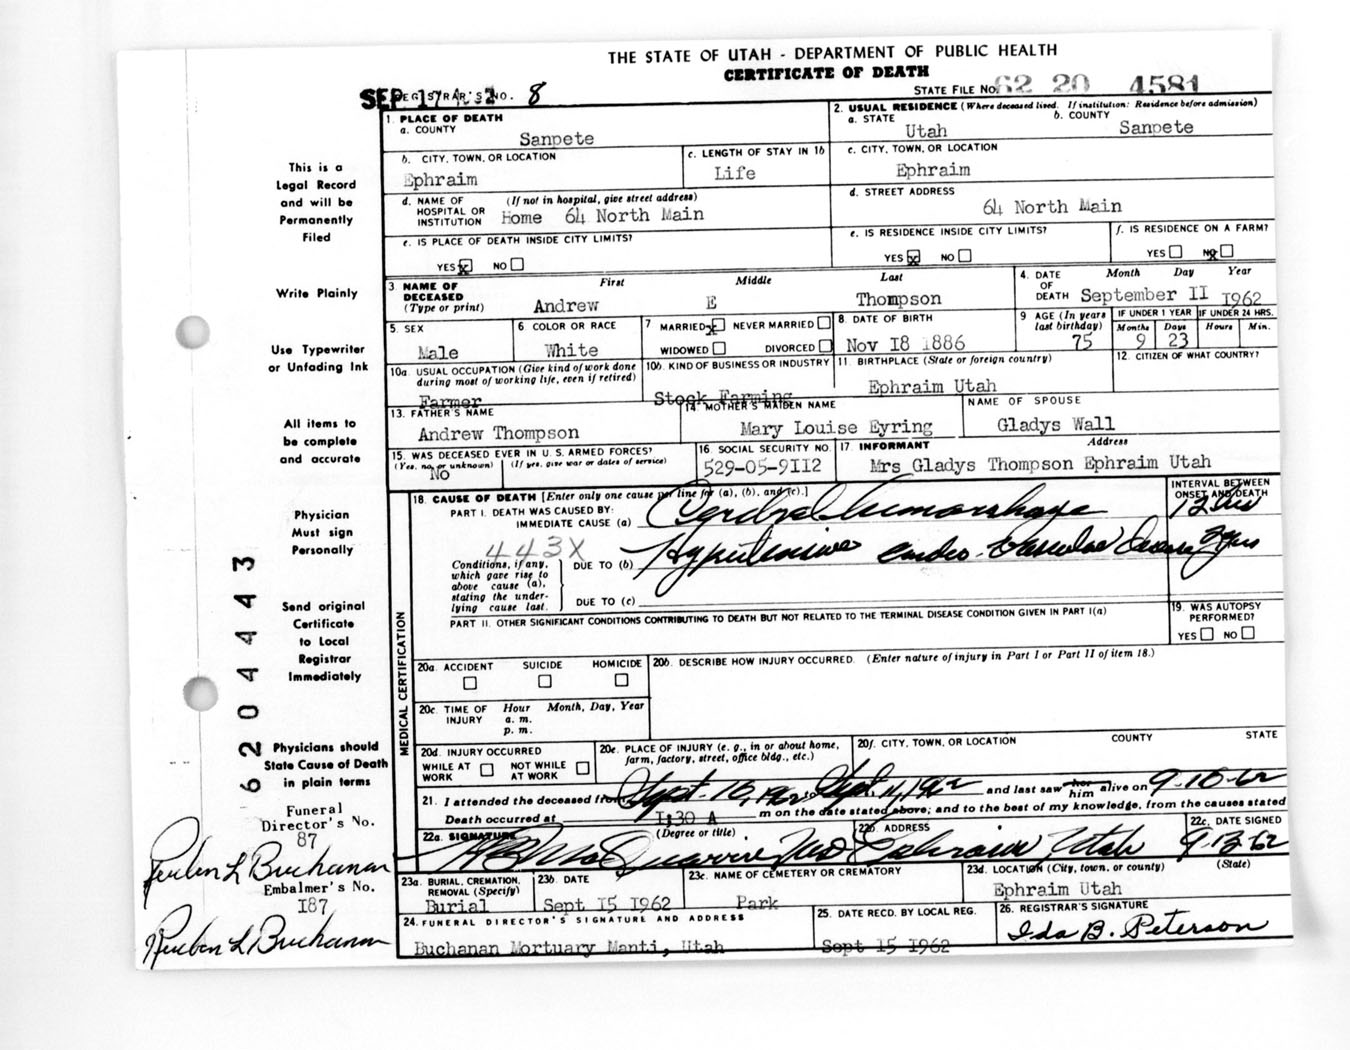 THE STATE OF UTAH - DEPARTMENT OF PUBLIC HEALTH
CERTIFICATE OF DEATH
SEP 17 1962 REGISTRAR'S NO. 8 STATE FILE NO. 62 20 4581
1. PLACE OF DEATH
a. COUNTY
Sanpete
2. USUAL RESIDENCE (Where deceased lived. If institution: Residence before admission)
a. STATE b. COUNTY
Utah Sanpete
b. CITY, TOWN, OR LOCATION
Ephraim
c. LENGTH OF STAY IN 1b
Life
c. CITY, TOWN, OR LOCATION
Ephraim
d. NAME OF HOSPITAL OR INSTITUTION (If not in hospital, give street address)
Home 64 North Main
d. STREET ADDRESS
64 North Main
e. IS PLACE OF DEATH INSIDE CITY LIMITS?
YES x NO
e. IS RESIDENCE INSIDE CITY LIMITS?
YES x NO
f. IS RESIDENCE ON A FARM?
YES NO x
3 NAME OF DECEASED (Type or print)
First Middle Last
Andrew E Thompson
4. DATE OF DEATH Month Day Year
September II I962
5. SEX
Male
6 COLOR OR RACE
White
7 MARRIED x NEVER MARRIED
WIDOWED DIVORCED
8. DATE OF BIRTH
Nov I8 I886
9 AGE (In years last birthday)
75
IF UNDER 1 YEAR
Months Days
9 23
IF UNDER 24 HRS.
Hours Min.
10a. USUAL OCCUPATION (Give kind of work done during most of working life, even if retired)
Farmer
10b. KIND OF BUSINESS OR INDUSTRY
Stock Farming
11. BIRTHPLACE (State or foreign country)
Ephraim Utah
12. CITIZEN OF WHAT COUNTRY?
13. FATHER'S NAME
Andrew Thompson
14 MOTHER'S MAIDEN NAME
Mary Louise Eyring
NAME OF SPOUSE
Gladys Wall
15. WAS DECEASED EVER IN U. S. ARMED FORCES?
(Yes, no, or unknown) (If yes, give war or dates of service)
No
16. SOCIAL SECURITY NO.
529-05-9II2
17 INFORMANT Address
Mrs Gladys Thompson Ephraim Utah
18. CAUSE OF DEATH [Enter only one cause per line for (a), (b), and (c).]
INTERVAL BETWEEN ONSET AND DEATH
PART I. DEATH WAS CAUSED BY:
IMMEDIATE CAUSE (a) Cerebral hemorrhage 12 hrs
443X
Conditions, if any, which gave rise to above cause (a), stating the underlying cause last.
DUE TO (b) Hypertensive cardio-Vascular Disease yrs
DUE TO (c)
PART II. OTHER SIGNIFICANT CONDITIONS CONTRIBUTING TO DEATH BUT NOT RELATED TO THE TERMINAL DISEASE CONDITION GIVEN IN PART I(a)
19. WAS AUTOPSY PERFORMED?
YES NO
MEDICAL CERTIFICATION
20a. ACCIDENT SUICIDE HOMICIDE
20b. DESCRIBE HOW INJURY OCCURRED. (Enter nature of injury in Part I or Part II of item 18.)
20c. TIME OF INJURY Hour Month, Day, Year
a. m.
p. m.
20d. INJURY OCCURRED
WHILE AT WORK NOT WHILE AT WORK
20e. PLACE OF INJURY (e. g., in or about home, farm, factory, street, office bldg., etc.)
20f. CITY, TOWN, OR LOCATION COUNTY STATE
21. I attended the deceased from Sept. 10, 1962 to Sept. 11, 1962 and last saw her him alive on 9-10-62
Death occurred at I:30 A m on the date stated above; and to the best of my knowledge, from the causes stated
22a. SIGNATURE (Degree or title)
22b. ADDRESS
Ephraim, Utah
22c. DATE SIGNED
9-13-62
23a. BURIAL, CREMATION, REMOVAL (Specify)
Burial
23b. DATE
Sept I5 I962
23c. NAME OF CEMETERY OR CREMATORY
Park
23d. LOCATION (City, town, or county) (State)
Ephraim Utah
24. FUNERAL DIRECTOR'S SIGNATURE AND ADDRESS
Buchanan Mortuary Manti, Utah
25. DATE RECD. BY LOCAL REG.
Sept I5 I962
26. REGISTRAR'S SIGNATURE
Ida B. Peterson
This is a
Legal Record
and will be
Permanently
Filed
Write Plainly
Use Typewriter
or Unfading Ink
All items to
be complete
and accurate
Physician
Must sign
Personally
Send original
Certificate
to Local
Registrar
Immediately
Physicians should
State Cause of Death
in plain terms
Funeral
Director's No.
87
Reuben L Buchanan
Embalmer's No.
I87
Reuben L Buchanan
6204443